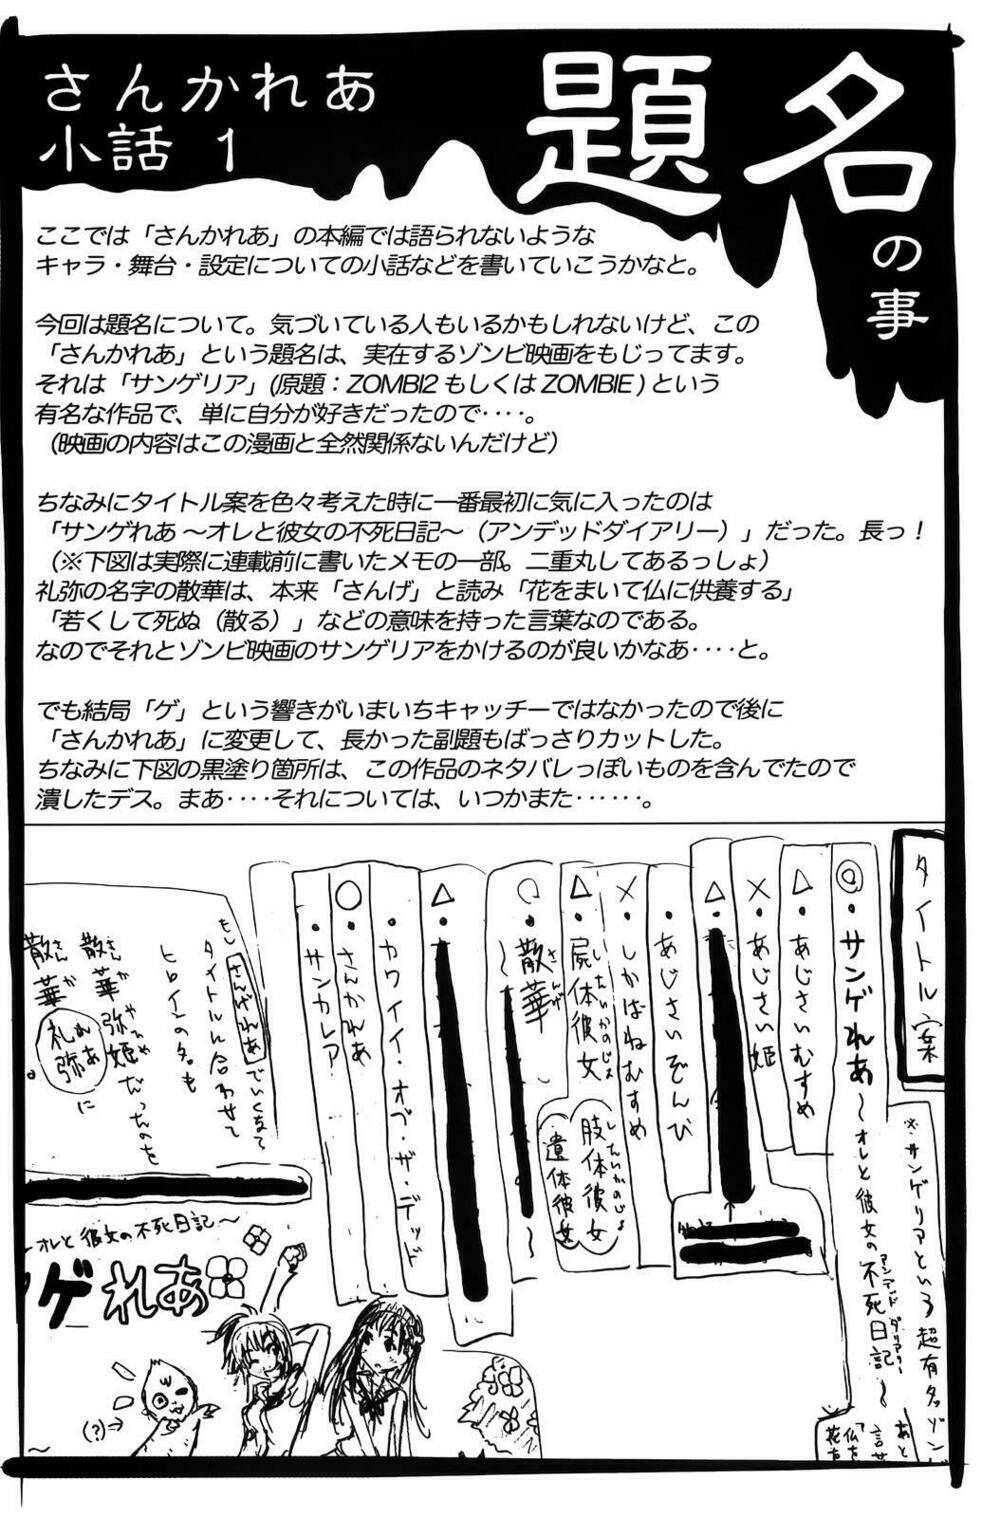 さんかれあ
小話 1
題名
の事
ここでは「さんかれあ」の本編では語られないような
キャラ・舞台・設定についての小話などを書いていこうかなと。
今回は題名について。気づいている人もいるかもしれないけど、この
「さんかれあ」という題名は、実在するゾンビ映画をもじってます。
それは「サンゲリア」(原題：ZOMBI2 もしくは ZOMBIE ) という
有名な作品で、単に自分が好きだったので‥‥。
（映画の内容はこの漫画と全然関係ないんだけど）
ちなみにタイトル案を色々考えた時に一番最初に気に入ったのは
「サンゲれあ ～オレと彼女の不死日記～（アンデッドダイアリー）」だった。長っ！
（※下図は実際に連載前に書いたメモの一部。二重丸してあるっしょ）
礼弥の名字の散華は、本来「さんげ」と読み「花をまいて仏に供養する」
「若くして死ぬ（散る）」などの意味を持った言葉なのである。
なのでそれとゾンビ映画のサンゲリアをかけるのが良いかなあ‥‥と。
でも結局「ゲ」という響きがいまいちキャッチーではなかったので後に
「さんかれあ」に変更して、長かった副題もばっさりカットした。
ちなみに下図の黒塗り箇所は、この作品のネタバレっぽいものを含んでたので
潰したデス。まあ‥‥それについては、いつかまた‥‥‥。
タイトル案
※サンゲリアという超有名ゾン
あと
言せ
「仏を
花を
◎・サンゲれあ～オレと彼女の不死日記～
アンデッドダイアリー
△・あじさいむすめ
×・あじさい姫
△・
・あじさいぞんび
×・しかばねむすめ
△・屍体彼女
したいかのじょ
肢体彼女
したいかのじょ
遺体彼女
○・散華～
さんげ
～
△・
・カワイイ・オブ・ザ・デッド
○・さんかれあ
・サンカレア
もし
さんげれあ でいくなら
タイトルに合わせて
ヒロインの名も
散華弥姫だったのを
散華礼弥に
さんか れあ
～オレと彼女の不死日記～
ゲれあ
(？)→
～